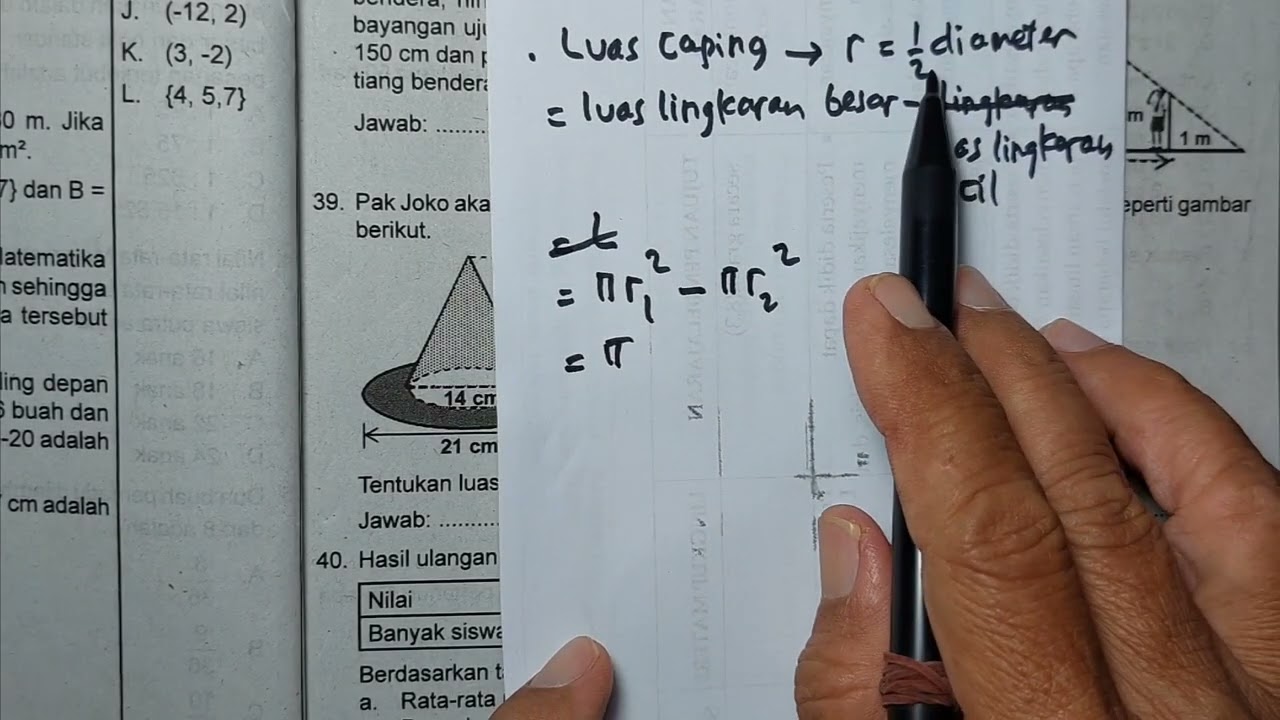 J. (-12, 2)
K. (3, -2)
L. {4, 5,7}
0 m. Jika
m².
7} dan B =
Matematika
sehingga
a tersebut
ling depan
6 buah dan
-20 adalah
cm adalah
bayangan uju
150 cm dan p
tiang bendera
Jawab: ..........
39. Pak Joko aka
berikut.
14 cm
21 cm
Tentukan luas
Jawab: ..........
40. Hasil ulangan
Nilai
Banyak siswa
Berdasarkan t
a. Rata-rata
. Luas Caping → r = 1/2 diameter
= luas lingkaran besar - lingkaran
as lingkaran
cil
= L
= πr₁² - πr₂²
= π
m
1 m
eperti gambar